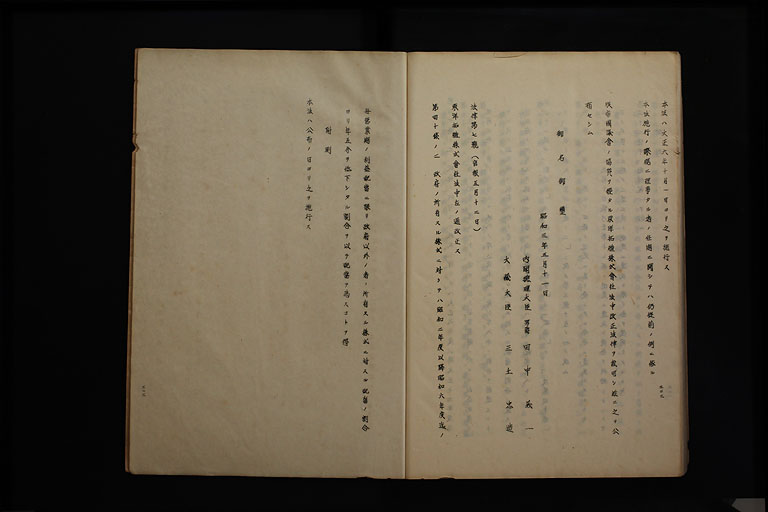 本法ハ大正六年十月一日ヨリ之ヲ施行ス
本法施行ノ際現ニ従事スル者ノ任期ニ関シテハ仍従前ノ例ニ依ル
朕帝國議會ノ協賛ヲ經タル東洋拓殖株式會社法中改正法律ヲ裁可シ玆ニ之ヲ公
布セシム
御名御璽
昭和三年五月十一日
内閣總理大臣 男爵 田中義一
大藏大臣 三土忠造
法律第七號（官報五月十二日）
東洋拓殖株式會社法中左ノ通改正ス
第四十條ノ二 政府ノ所有スル株式ニ対シテハ昭和二年度以降昭和六年度迄ノ
毎營業期ノ利益配當ニ限リ政府以外ノ者ノ所有スル株式ニ対スル配當ノ割合
ヨリ年五分ヲ低下シタル割合ヲ以テ配當ヲ為スコトヲ得
附則
本法ハ公布ノ日ヨリ之ヲ施行ス